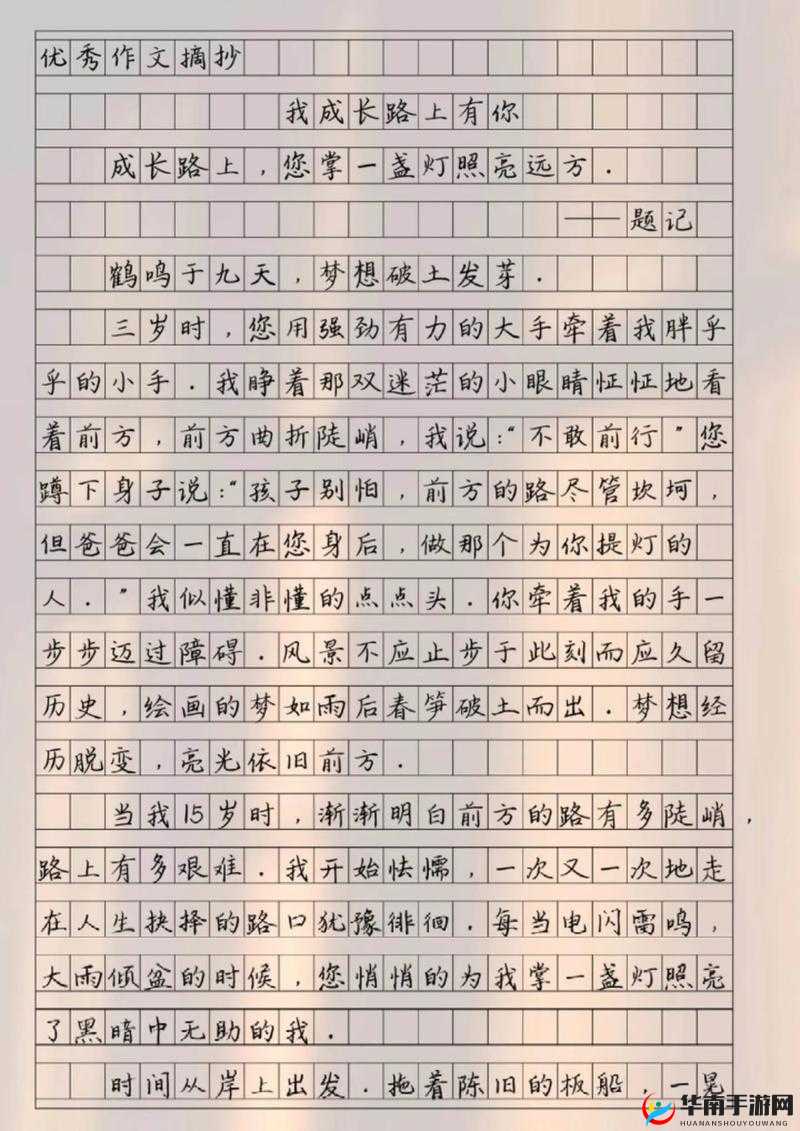 优秀作文摘抄
我成长路上有你
成长路上，您掌一盏灯照亮远方.
——题记
鹤鸣于九天，梦想破土发芽.
三岁时，您用强劲有力的大手牵着我胖乎
乎的小手.我睁着那双迷茫的小眼睛怔怔地看
着前方，前方曲折陡峭，我说：“不敢前行”您
蹲下身子说：“孩子别怕，前方的路尽管坎坷，
但爸爸会一直在您身后，做那个为你提灯的
人.”我似懂非懂的点点头.你牵着我的手一
步步迈过障碍.风景不应止步于此刻而应久留
历史，绘画的梦如雨后春笋破土而出.梦想经
历脱变，亮光依旧前方.
当我15岁时，渐渐明白前方的路有多陡峭，
路上有多艰难.我开始怯懦，一次又一次地走
在人生抉择的路口犹豫徘徊.每当电闪雷鸣，
大雨倾盆的时候，您悄悄的为我掌一盏灯照亮
了黑暗中无助的我.
时间从岸上出发.拖着陈旧的板船，一晃
华南手游网
HUANANSHOUYOUWANG